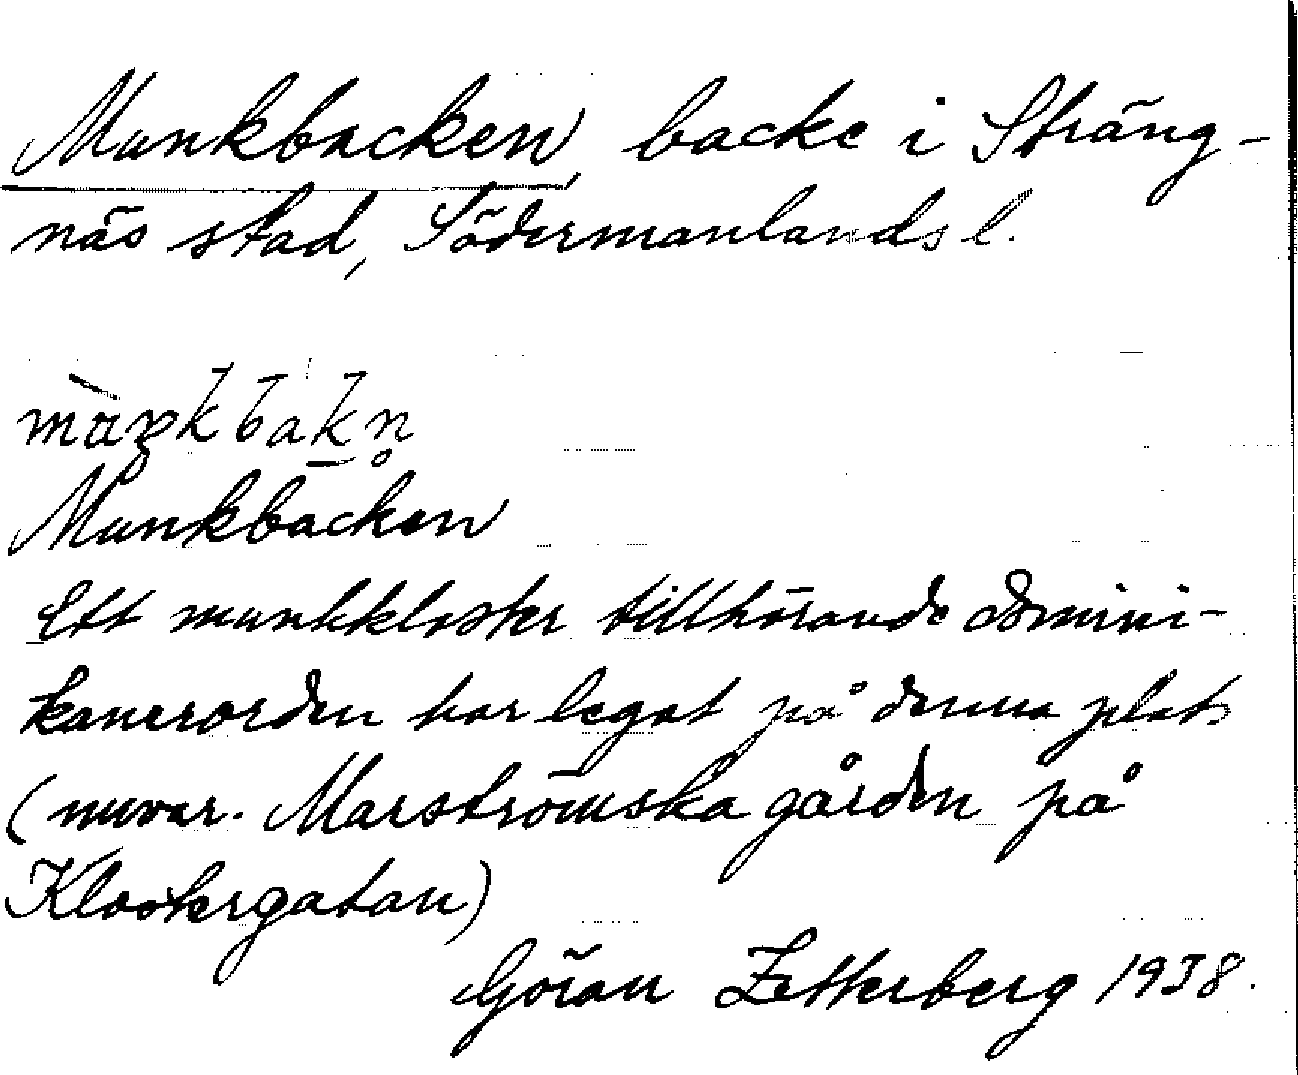 Munkbacken, backe i Sträng-
näs stad, Södermanlands l.
Munkbacken
Ett munkkloster tillhörande domini-
kanerorden har legat på denna plats
(nuvar. Marströmska gården på
Klostergatan)
Göran Zetterberg 1938.